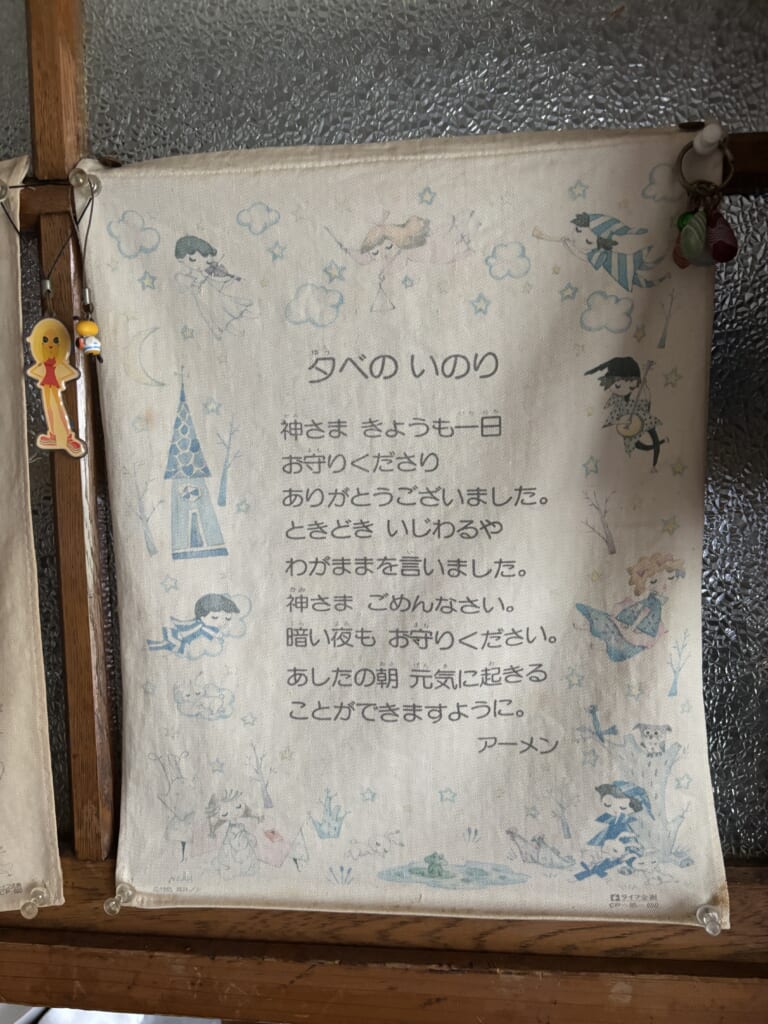 夕べの いのり
神さま きょうも一日
お守りくださり
ありがとうございました。
ときどき いじわるや
わがままを言いました。
神さま ごめんなさい。
暗い夜も お守りください。
あしたの朝 元気に起きる
ことができますように。
アーメン
ライフ企画